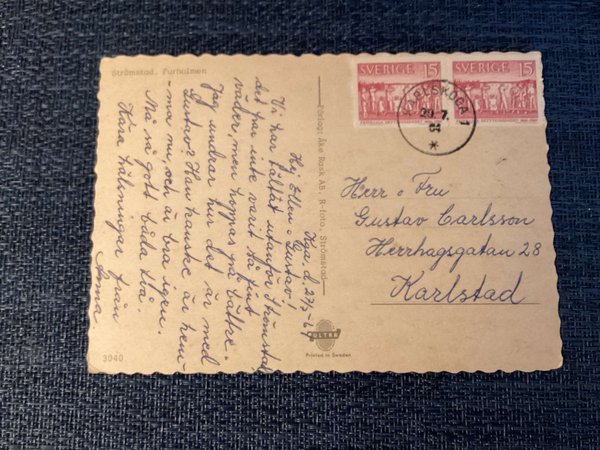 Strömstad. Furholmen
Kga. d. 27/5-64
Hej Ellen o Gustav!
Vi har tältat utanför Strömstad
det har inte varit så fint
väder, men hoppas på bättre.
Jag undrar hur det är med
Gustav? Han kanske är hem-
ma nu, och är bra igen.
Må så gott båda två
Kära hälsningar från
Anna
3040
Förlag: Åke Rask AB, R-foto, Strömstad
ULTRA
Printed in Sweden
SVERIGE 15
SVERIGE 15
KARLSKOGA 1
29.7.
64
Herr o Fru
Gustav Carlsson
Herrhagsgatan 28
Karlstad